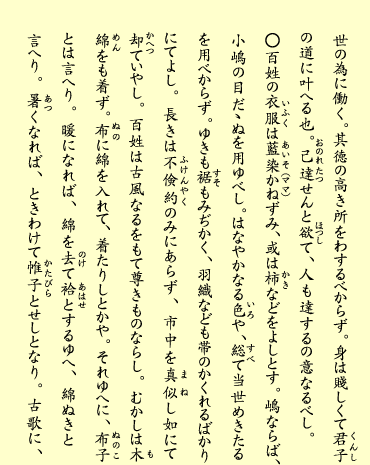 世の為に働く。其徳の高き所をわするべからず。身は賤しくて君子
の道に叶へる也。己達せんと欲て、人も達するの意なるべし。
〇百姓の衣服は藍染かねずみ、或は柿などをよしとす。嶋ならば、
小嶋の目だゝぬを用ゆべし。はなやかなる色や、総て当世めきたる
を用べからず。ゆきも裾もみぢかく、羽織なども帯のかくれるばかり
にてよし。長きは不倹約のみにあらず、市中を真似し如にて
却ていやし。百姓は古風なるをもて尊きものならし。むかしは木
綿をも着ず。布に綿を入れて、着たりしとかや。それゆへに、布子
とは言へり。暖になれば、綿を去て袷とするゆへ、綿ぬきと
言へり。暑くなれば、ときわけて帷子とせしとなり。古歌に、